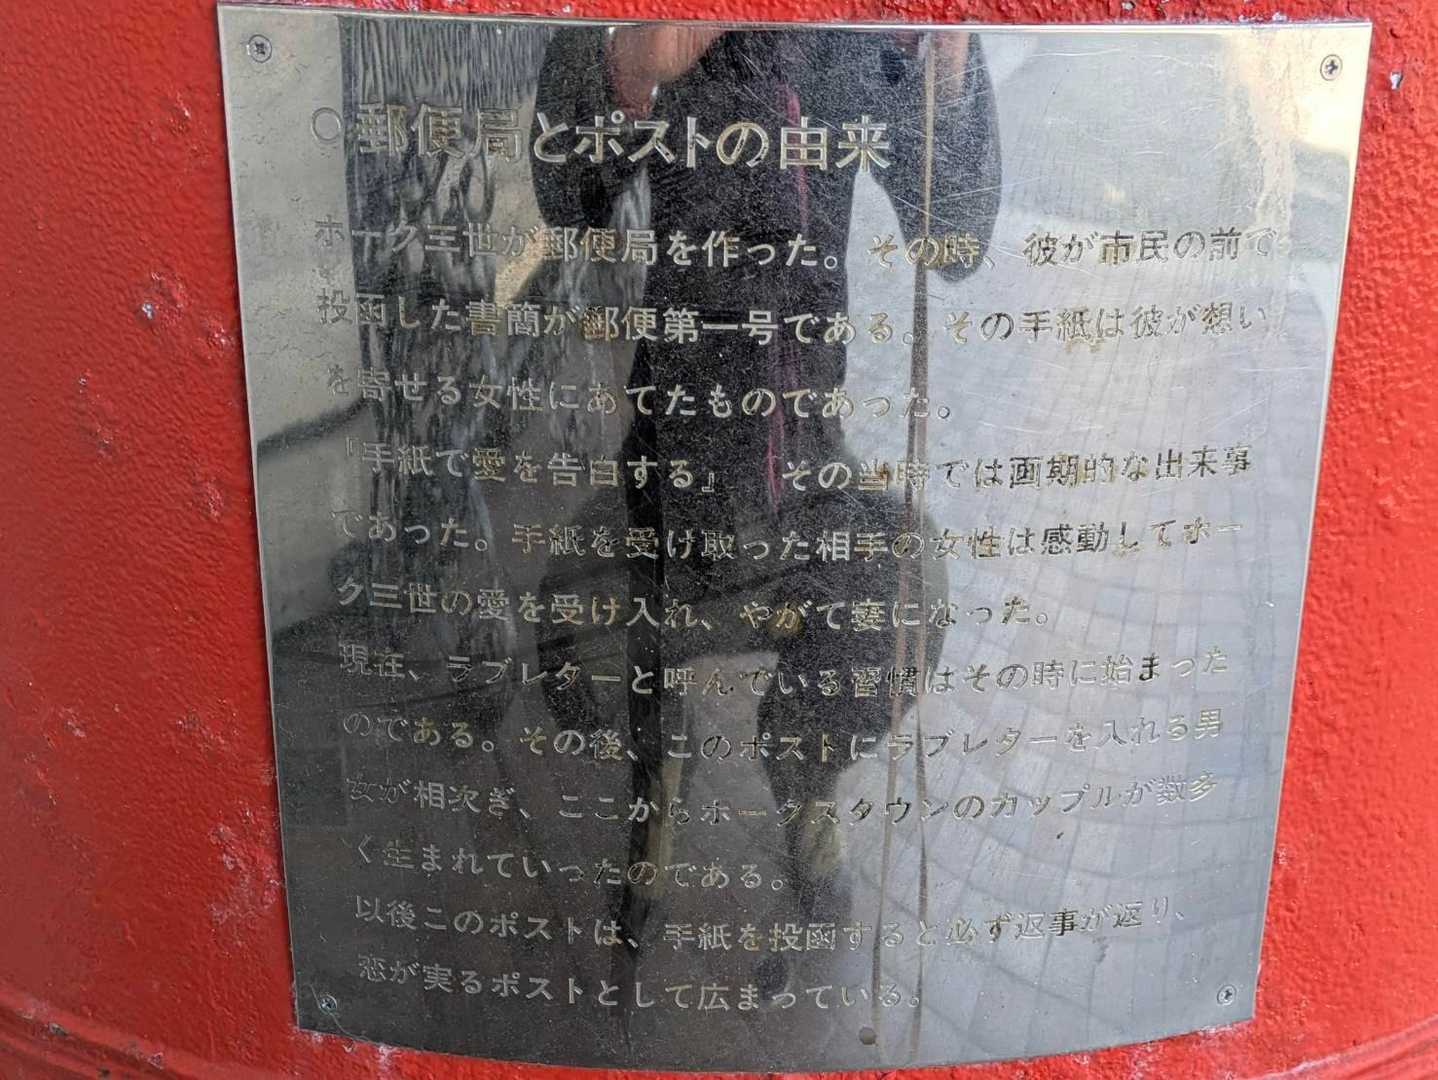 ○郵便局とポストの由来
ホーク三世が郵便局を作った。その時、彼が市民の前で
投函した書簡が郵便第一号である。その手紙は彼が想い
を寄せる女性にあてたものであった。
『手紙で愛を告白する』 その当時では画期的な出来事
であった。手紙を受け取った相手の女性は感動してホー
ク三世の愛を受け入れ、やがて妻になった。
現在、ラブレターと呼んでいる習慣はその時に始まった
のである。その後、このポストにラブレターを入れる男
女が相次ぎ、ここからホークスタウンのカップルが数多
く生まれていったのである。
以後このポストは、手紙を投函すると必ず返事が返り、
恋が実るポストとして広まっている。